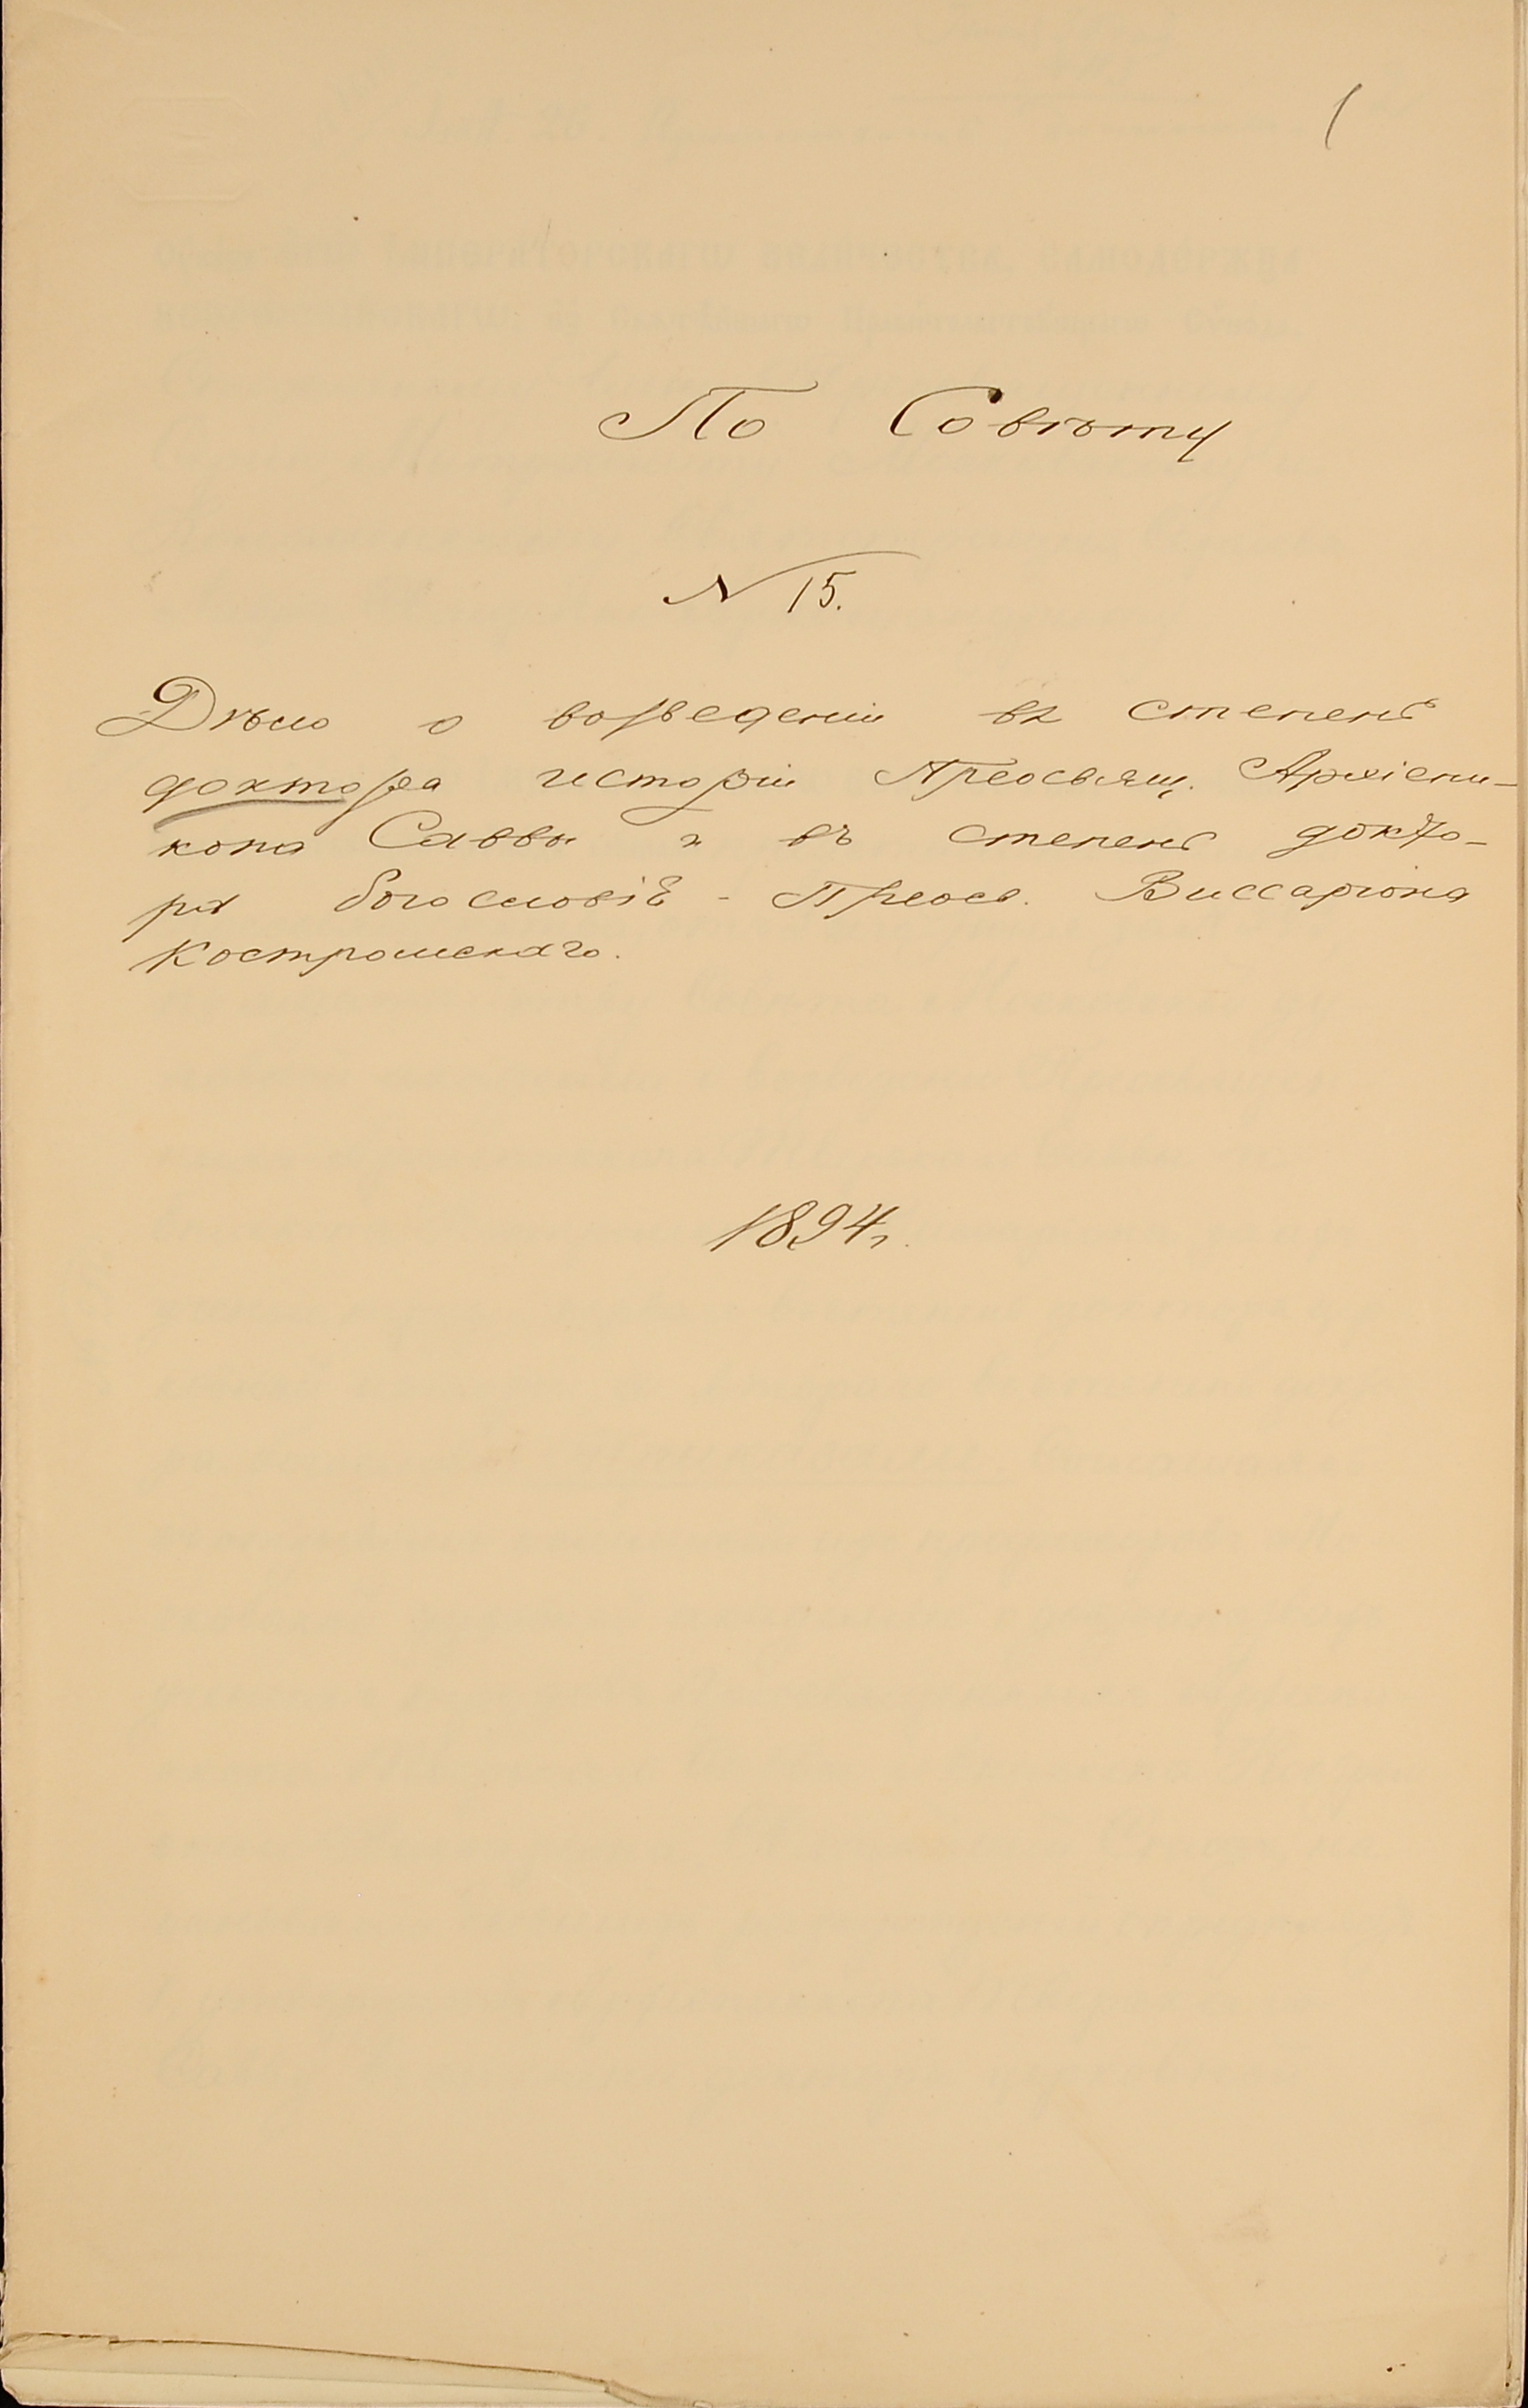 1
По Совѣту
N 15.
Дѣло о возведеніи въ степень
доктора исторіи Преосвящ. Архіепи-
копа Саввы и въ степень докто-
ра богословія - Преосв. Виссаріона
Костромскаго.
1894 г.